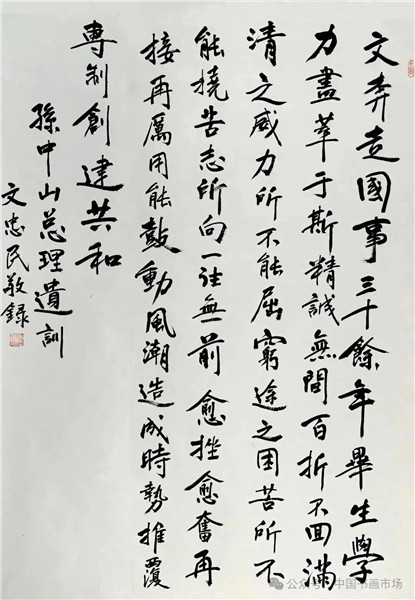 文奔走國事三十餘年畢生學
力盡萃于斯精誠無間百折不回滿
清之威力所不能屈窮途之困苦所不
能撓吾志所向一往無前愈挫愈奮再
接再厲用能鼓動風潮造成時勢推覆
專制創建共和
孫中山总理遺訓
文忠民敬録
公众号·中国书画市场